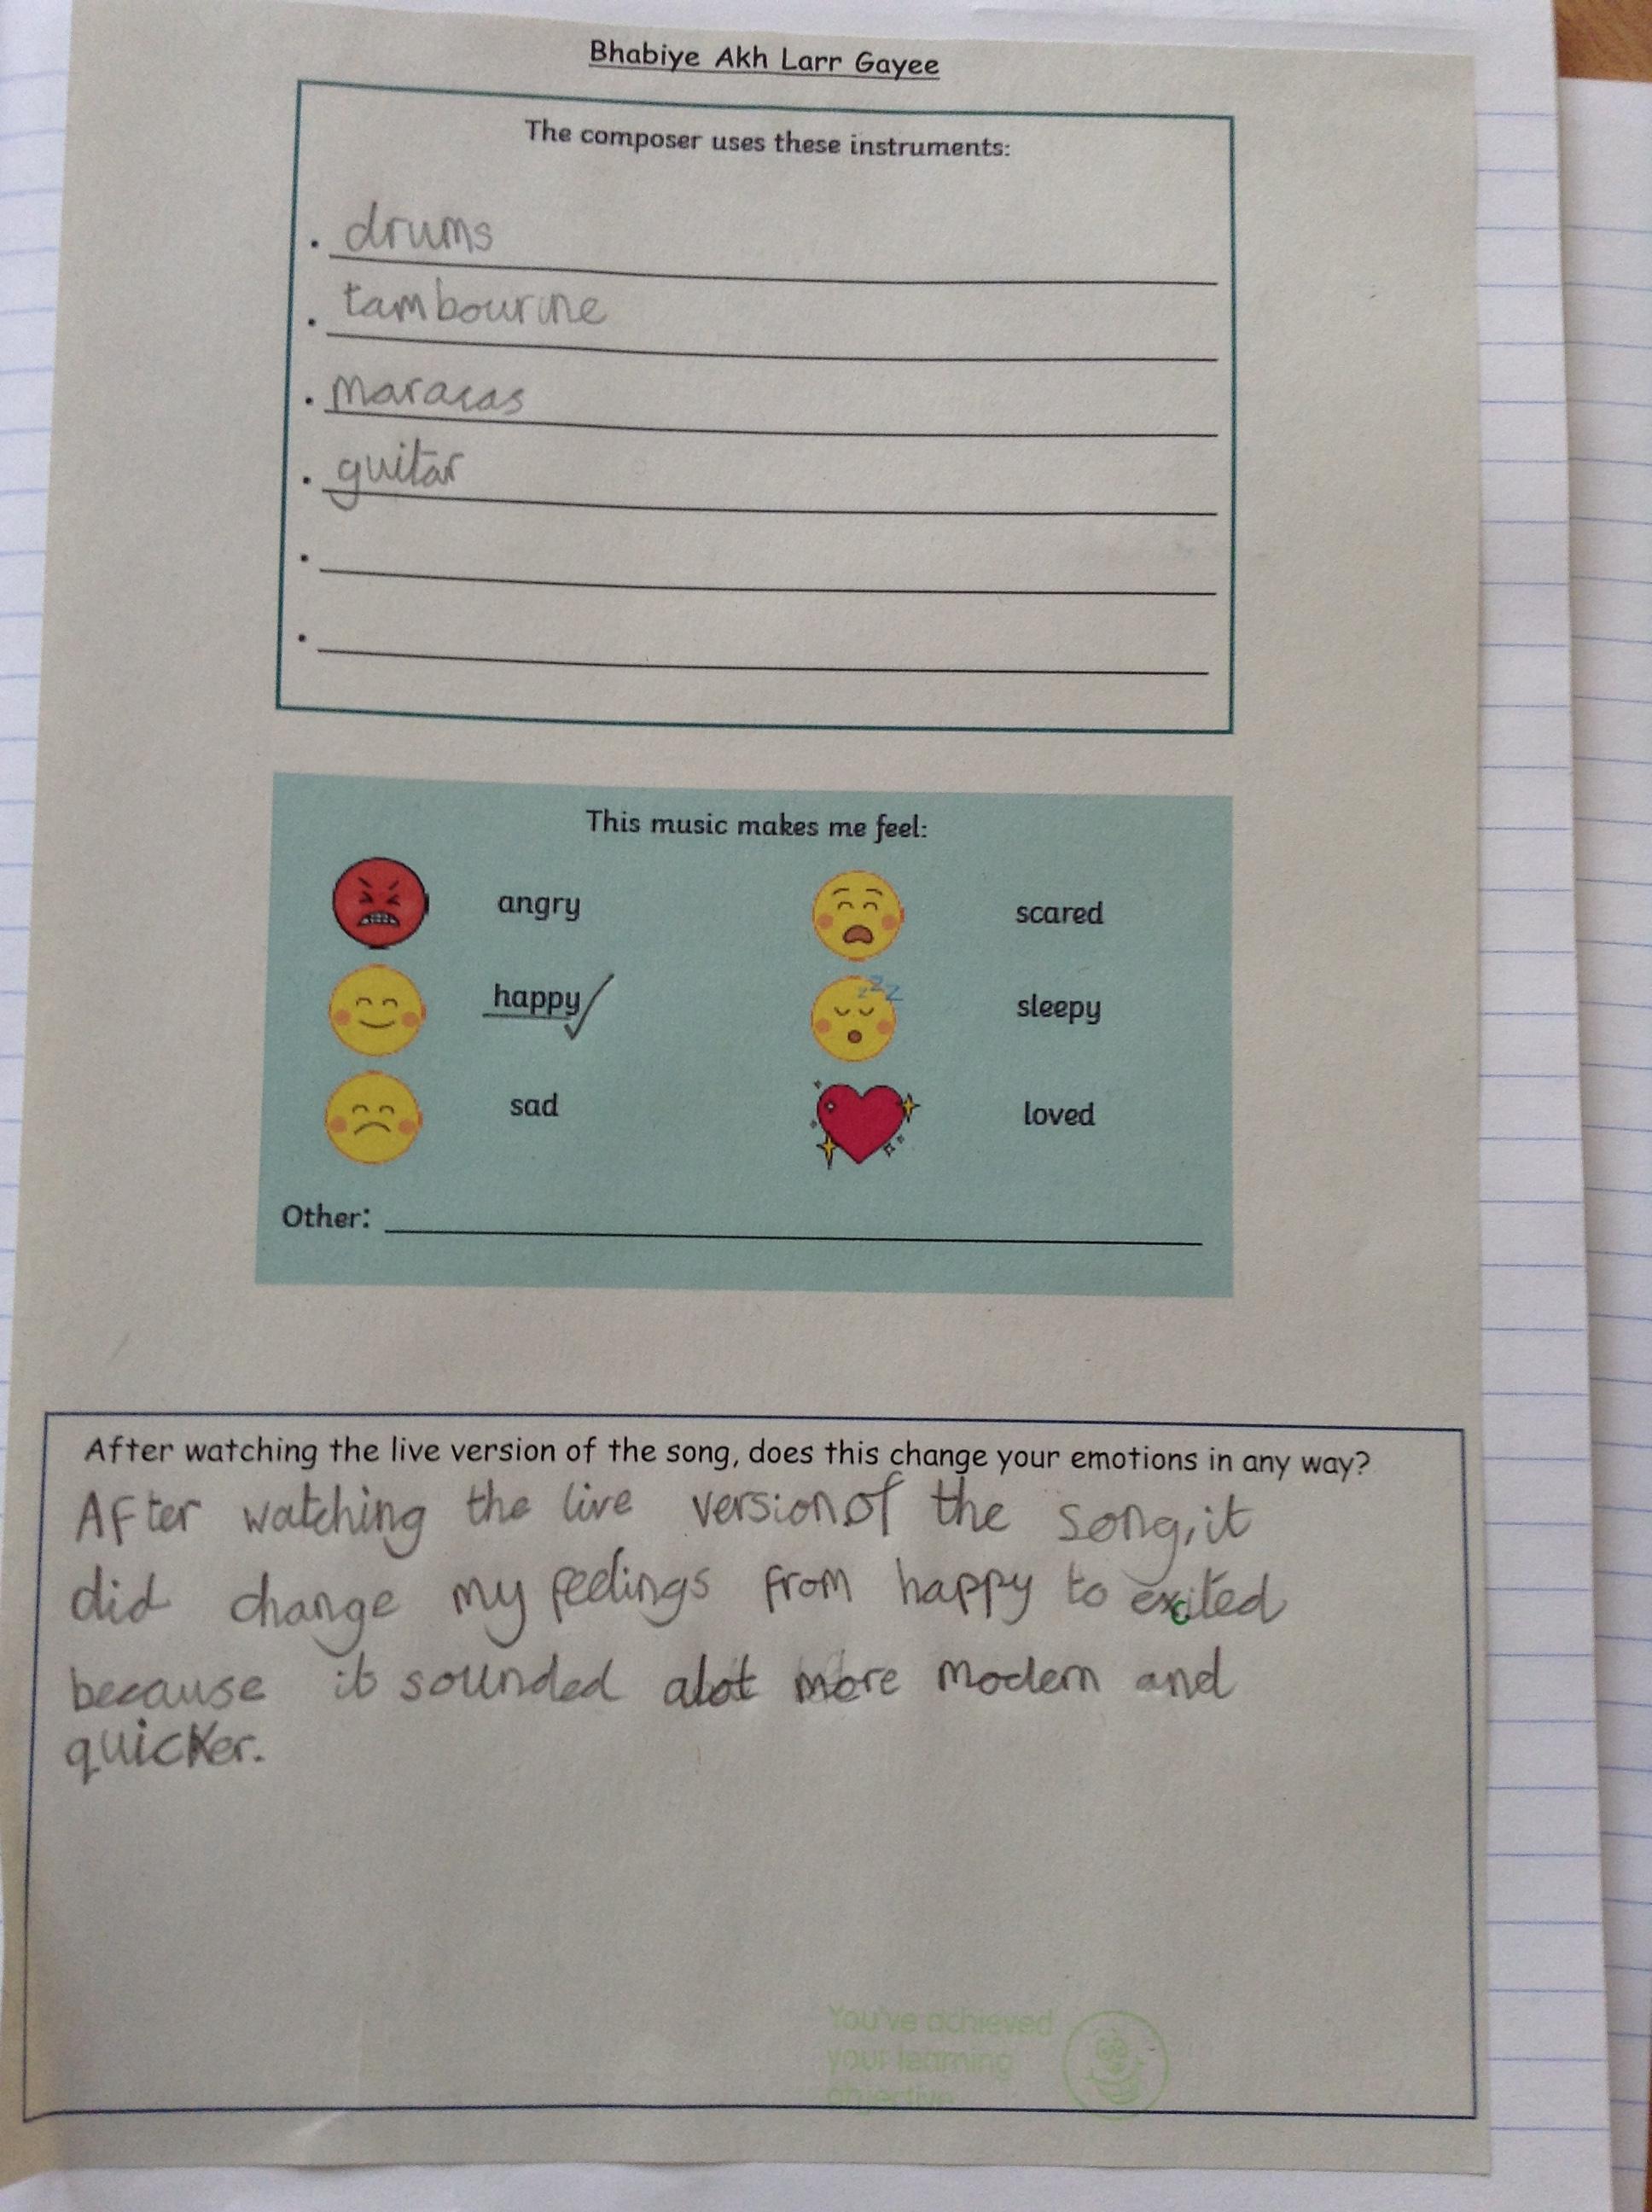 Bhabiye Akh Larr Gayee
The composer uses these instruments:
. drums
. tambourine
. maracas
. guitar
.
.
This music makes me feel:
angry scared
happy sleepy
zzz
sad loved
Other:
After watching the live version of the song, does this change your emotions in any way?
After watching the live version of the song, it
did change my feelings from happy to excited
because it sounded alot more modern and
quicker.
You've achieved
your learning
objective